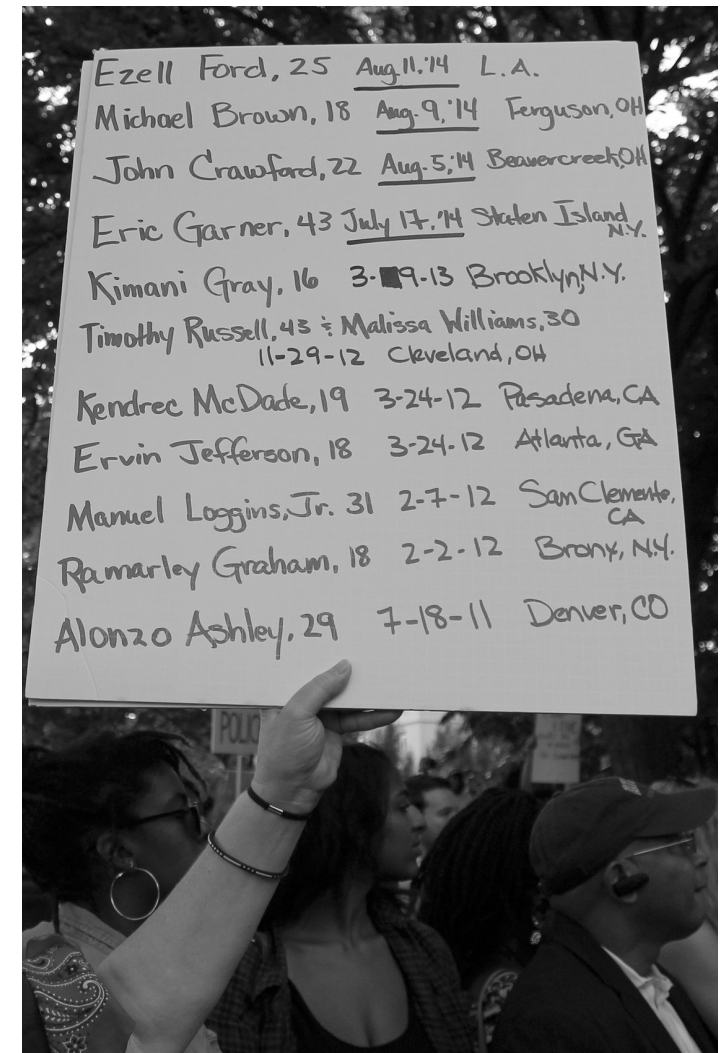 Ezell Ford, 25 Aug. 11, '14 L.A.
Michael Brown, 18 Aug. 9, '14 Ferguson, OH
John Crawford, 22 Aug. 5, '14 Beavercreek, OH
Eric Garner, 43 July 17, '14 Staten Island, N.Y.
Kimani Gray, 16 3-9-13 Brooklyn, N.Y.
Timothy Russell, 43 & Malissa Williams, 30
11-29-12 Cleveland, OH
Kendrec McDade, 19 3-24-12 Pasadena, CA
Ervin Jefferson, 18 3-24-12 Atlanta, GA
Manuel Loggins, Jr. 31 2-7-12 San Clemente, CA
Ramarley Graham, 18 2-2-12 Bronx, N.Y.
Alonzo Ashley, 29 7-18-11 Denver, CO